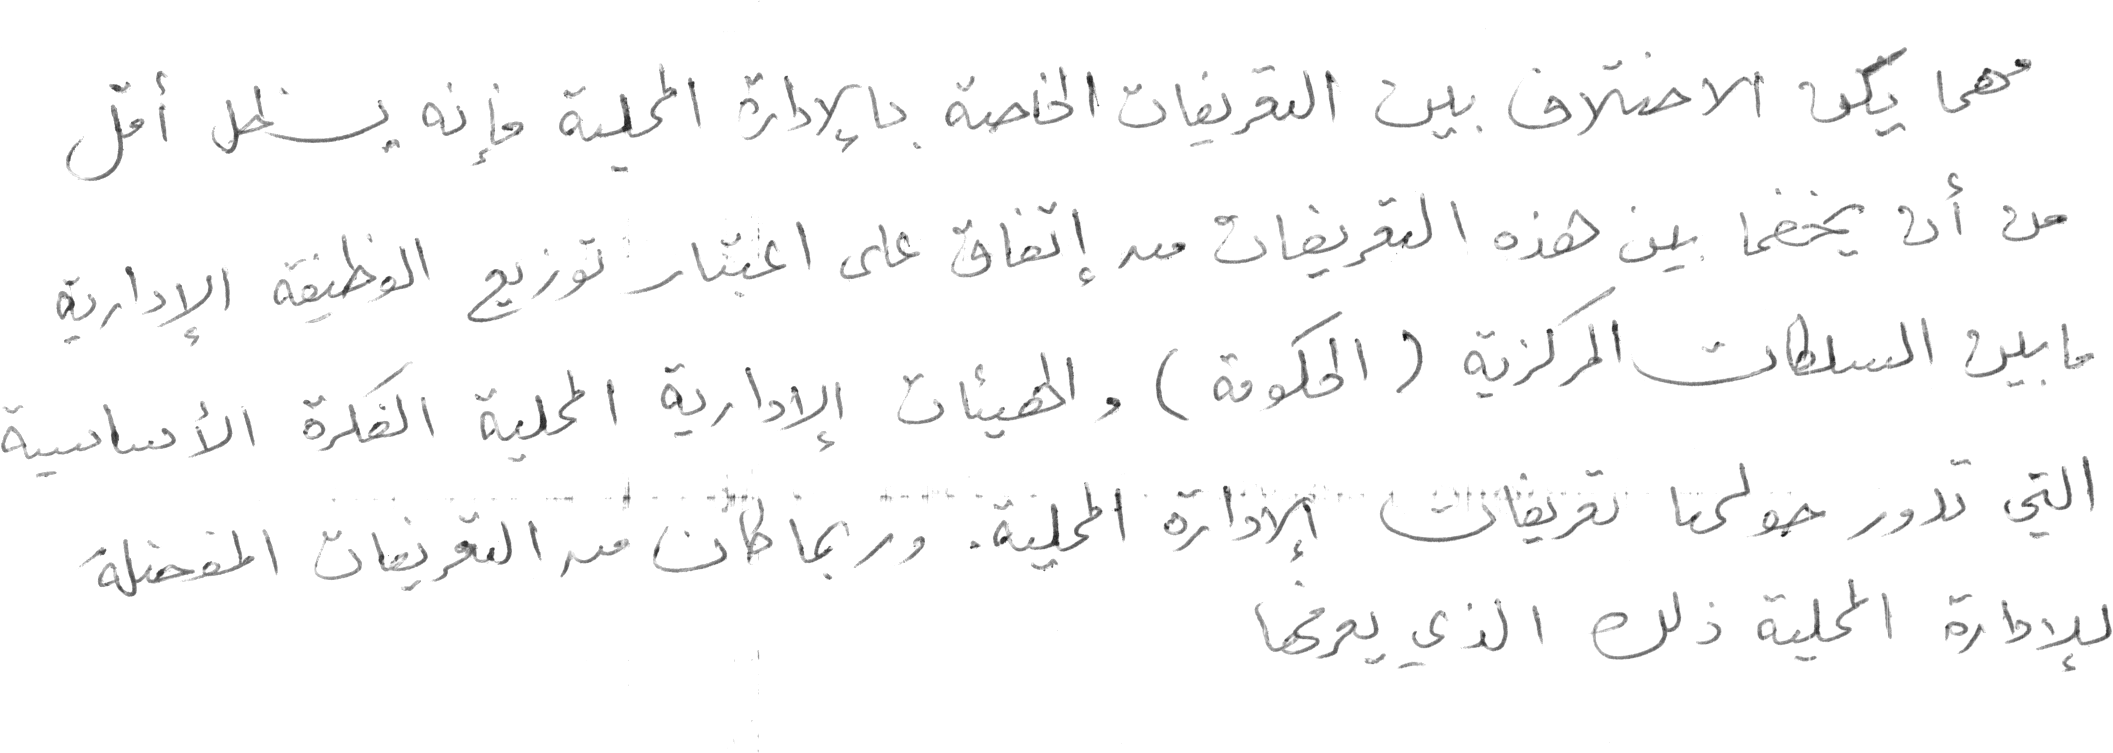 مهما يكن الاختلاف بين التعريفات الخاصة بالإدارة المحلية فإنه يظل أقل
من أن يخفما بين هذه التعريفات من إتفاق على اعتبار توزيع الوظيفة الإدارية
ما بين السلطات المركزية (الحكومة) والهيئات الإدارية المحلية الفكرة الأساسية
التي تدور حولها تعريفات الإدارة المحلية. وربما كان من التعريفات المفضلة
للإدارة المحلية ذلك الذي يعرفها